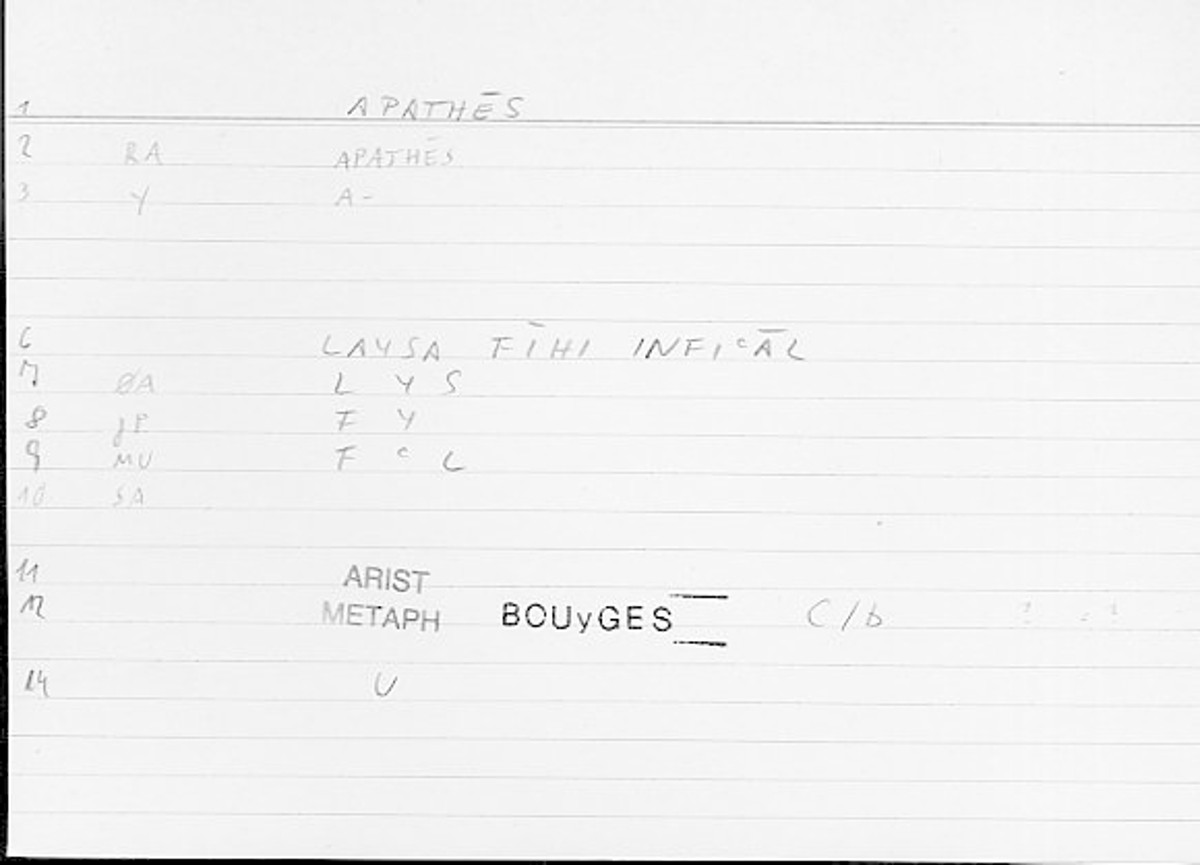 1 APATHĒS
2 RA APATHĒS
3 Y A-
6 LAYSA FĪHI INFIᶜĀL
7 ØA L Y S
8 JP F Y
9 MU F ᶜ L
10 SA
11 ARIST
12 METAPH BOUyGES C/b
14 U